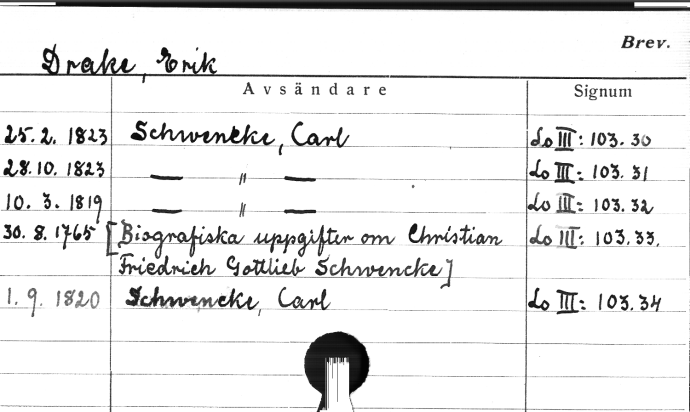 Brev.
Drake, Erik
Avsändare Signum
25.2. 1823 Schwencke, Carl Lo III: 103.30
28.10. 1823 — " — Lo III: 103.31
10. 3. 1819 — " — Lo III: 103.32
30. 8. 1765 [Biografiska uppgifter om Christian Lo III: 103.33.
Friedrich Gottlieb Schwencke]
1. 9. 1820 Schwencke, Carl Lo III: 103.34